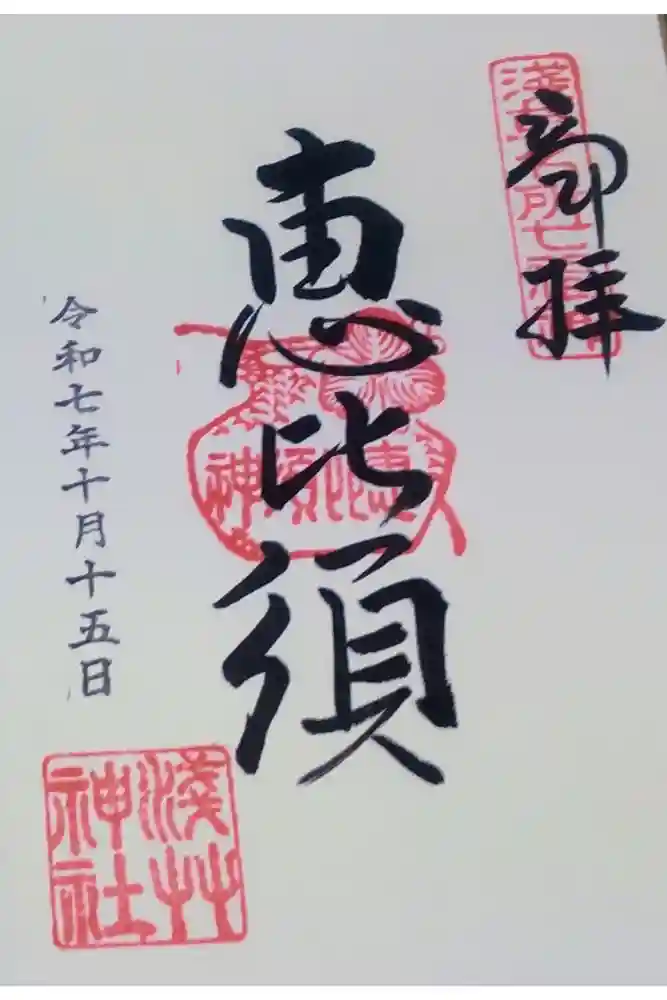 浅草名所七福神
奉拝
恵比須
恵比須神
令和七年十月十五日
淺草神社